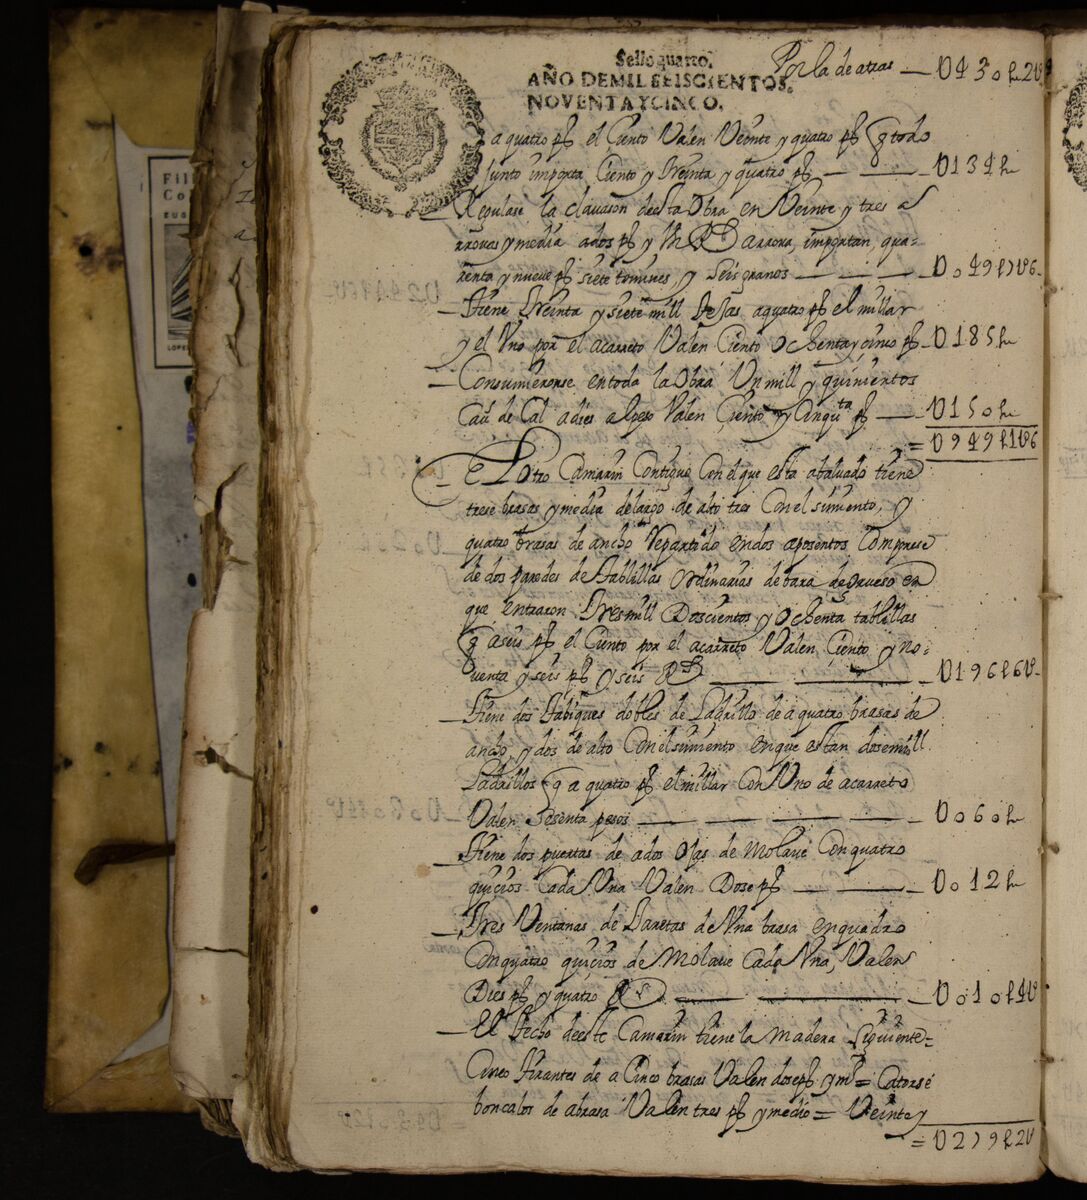 Sello quarto.
AÑO DE MIL SEISCIENTOS,
NOVENTA Y CINCO.
Por la de atras — U430 p 2 t
a quatro ps el Ciento Valen Veinte y quatro ps q todo
junto importa Ciento y treinta y quatro ps — — U134 p
Regulase la clauason desta Obra en Veinte y tres a
rrouas y media a dos ps y arroua, importan, qua=
renta y nueve ps siete tomines, y seis granos — — — U049 p 7 t 6
Tiene treinta y siete mill tejas a quatro ps el millar
y el Uno por el acarreto Valen Ciento ochenta y cinco ps U185 p
Consumieronse en toda la Obra Un mill y quinientos
Cau de Cal a dies al peso Valen Ciento y Cinqta ps — U150 p
= U949 p 1 t 6
El Otro Camarin Contiguo Con el que esta abaluado tiene
trese brasas y media de largo de alto tres Con el simiento, y
quatro brasas de ancho Repartido en dos aposentos Componese
de dos paredes de tablillas ordinarias de bara de grueso en
que entraron tres mill Doscientos y Ochenta tablillas
q a seis ps el Ciento por el acarreto Valen Ciento y no=
venta y seis ps y seis Rs — — U196 p 6 t
Tiene dos tabiques dobles de Ladrillo de a quatro brasas de
ancho, y dos de alto Con el simiento en que estan dos mill
Ladrillos q a quatro ps el millar Con Uno de acarreto
Valen Sesenta pesos — — — — U060 p
Tiene dos puertas de a dos Ojas de Molaue Con quatro
quicios Cada Una Valen Dose ps — — U012 p
Tres Ventanas de Baretas de Una brasa en quadro
Con quatro quicios de Molaue Cada Una, Valen
Dies ps y quatro Rs — — U010 p 4 t
El techo deeste Camarin tiene la madera Siguiente=
Cinco tirantes de a Cinco brasas Valen dose ps y mo = Catorse
boncalos de a brasa Valen tres ps y medio = Veinte y
= U279 p 2 t